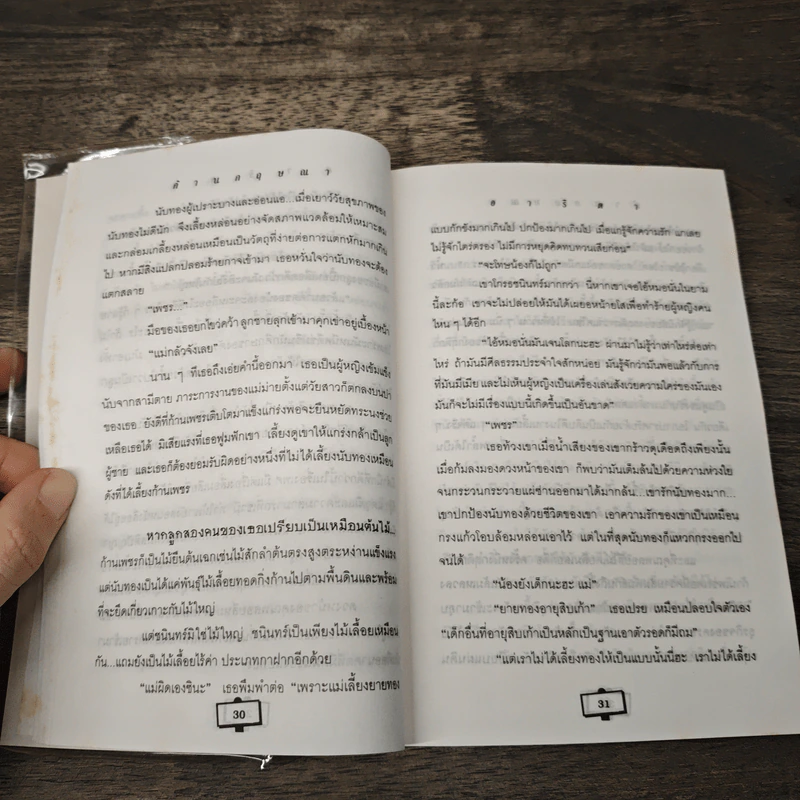 ก๊วนกฤษณา
นับทองผู้เปราะบางและอ่อนแอ...เมื่อเยาว์วัยสุขภาพของ
นับทองไม่ดีนัก จึงเลี้ยงหล่อนอย่างจัดสภาพแวดล้อมให้เหมาะสม
และกล่อมเกลี้ยงหล่อนเหมือนเป็นวัตถุที่ง่ายต่อการแตกหักมากเกิน
ไป หากมีสิ่งแปลกปลอมร้ายกาจเข้ามา เธอหวั่นใจว่านับทองจะต้อง
แตกสลาย
“เพชร...”
มือของเธอยกไขว่คว้า ลูกชายลุกเข้ามาคุกเข่าอยู่เบื้องหน้า
“แม่กลัวจังเลย”
นาน ๆ ทีเธอถึงเอ่ยคำนี้ออกมา เธอเป็นผู้หญิงเข้มแข็ง
นับจากสามีตาย ภาระการงานของแม่ม่ายตั้งแต่วัยสาวก็ตกลงบนบ่า
ของเธอ ยังดีที่ก้านเพชรเติบโตมาแข็งแกร่งพอจะยืนหยัดทระนงช่วย
เหลือเธอได้ มิเสียแรงที่เธอฟูมฟักเขา เลี้ยงดูเขาให้แกร่งกล้าเป็นลูก
ผู้ชาย และเธอก็ต้องยอมรับผิดอย่างหนึ่งที่ไม่ได้เลี้ยงนับทองเหมือน
ดังที่ได้เลี้ยงก้านเพชร
หากลูกสองคนของเธอเปรียบเป็นเหมือนต้นไม้...
ก้านเพชรก็เป็นไม้ยืนต้นเฉกเช่นไม้สักลำต้นตรงสูงตระหง่านแข็งแรง
แต่นับทองเป็นได้แค่พันธุ์ไม้เลื้อยทอดกิ่งก้านไปตามพื้นดินและพร้อม
ที่จะยึดเกี่ยวเกาะกับไม้ใหญ่
แต่ชนินทร์มิใช่ไม้ใหญ่ ชนินทร์เป็นเพียงไม้เลื้อยเหมือน
กัน...แถมยังเป็นไม้เลื้อยไร้ค่า ประเภทกาฝากอีกด้วย
“แม่ผิดเองซินะ” เธอพึมพำต่อ “เพราะแม่เลี้ยงยายทอง
30
แบบกักขังมากเกินไป ปกป้องมากเกินไป เมื่อแกรู้จักความรัก แกเลย
ไม่รู้จักไตร่ตรอง ไม่มีการหยุดคิดทบทวนเสียก่อน”
“จะโทษน้องก็ไม่ถูก”
เขาโกรธชนินทร์มากกว่า นี่หากเขาเจอไอ้หมอนั่นในยาม
นี้ละก้อ เขาจะไม่ปล่อยให้มันได้เผยอหน้ายโสเพื่อทำร้ายผู้หญิงคน
ไหน ๆ ได้อีก
“ไอ้หมอนั่นมันเจนโลกนะฮะ ผ่านมาไม่รู้ว่าเท่าไหร่ต่อเท่า
ไหร่ ถ้ามันมีศีลธรรมประจำใจสักหน่อย มันรู้จักว่ามันพอแล้วกับการ
ที่มันมีเมีย และไม่เห็นผู้หญิงเป็นเครื่องเล่นสังเวยความใคร่ของมันเอง
มันก็จะไม่มีเรื่องแบบนี้เกิดขึ้นเป็นอันขาด”
“เพชร”
เธอท้วงเขาเมื่อน้ำเสียงของเขากร้าวดุเดือดถึงเพียงนั้น
เมื่อก้มลงมองดวงหน้าของเขา ก็พบว่ามันเต็มล้นไปด้วยความห่วงใย
จนกระวนกระวายแผ่ซ่านออกมาได้มากล้น...เขารักนับทองมาก...
เขาปกป้องนับทองด้วยชีวิตของเขา เอาความรักของเขาเป็นเหมือน
กรงแก้วโอบล้อมหล่อนเอาไว้ แต่ในที่สุดนับทองก็แหวกกรงออกไป
จนได้
“น้องยังเด็กนะฮะ แม่”
“ยายทองอายุสิบเก้า” เธอเปรย เหมือนปลอบใจตัวเอง
“เด็กอื่นที่อายุสิบเก้าเป็นหลักเป็นฐานเอาตัวรอดก็มีถม”
“แต่เราไม่ได้เลี้ยงทองให้เป็นแบบนั้นนี่ฮะ เราไม่ได้เลี้ยง
31